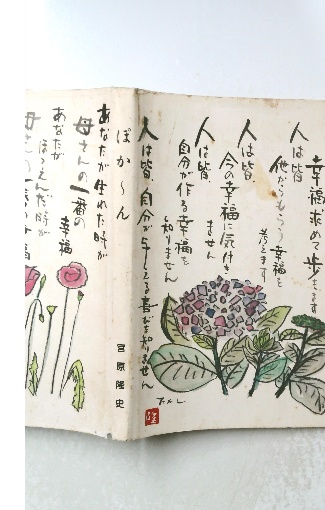 幸福求めて歩きます
人は皆
他からもらう幸福を
考えます
人は皆
今の幸福に気付き
ません
人は皆
自分が作る幸福を
知りません
人は皆、自分が与えてる喜びを知りません
ぽか〜ん
宮原隆史
あなたが生れた時が
母さんの一番の
幸福
あなたが
ほゝえんだ時が
母さんの一番の幸福